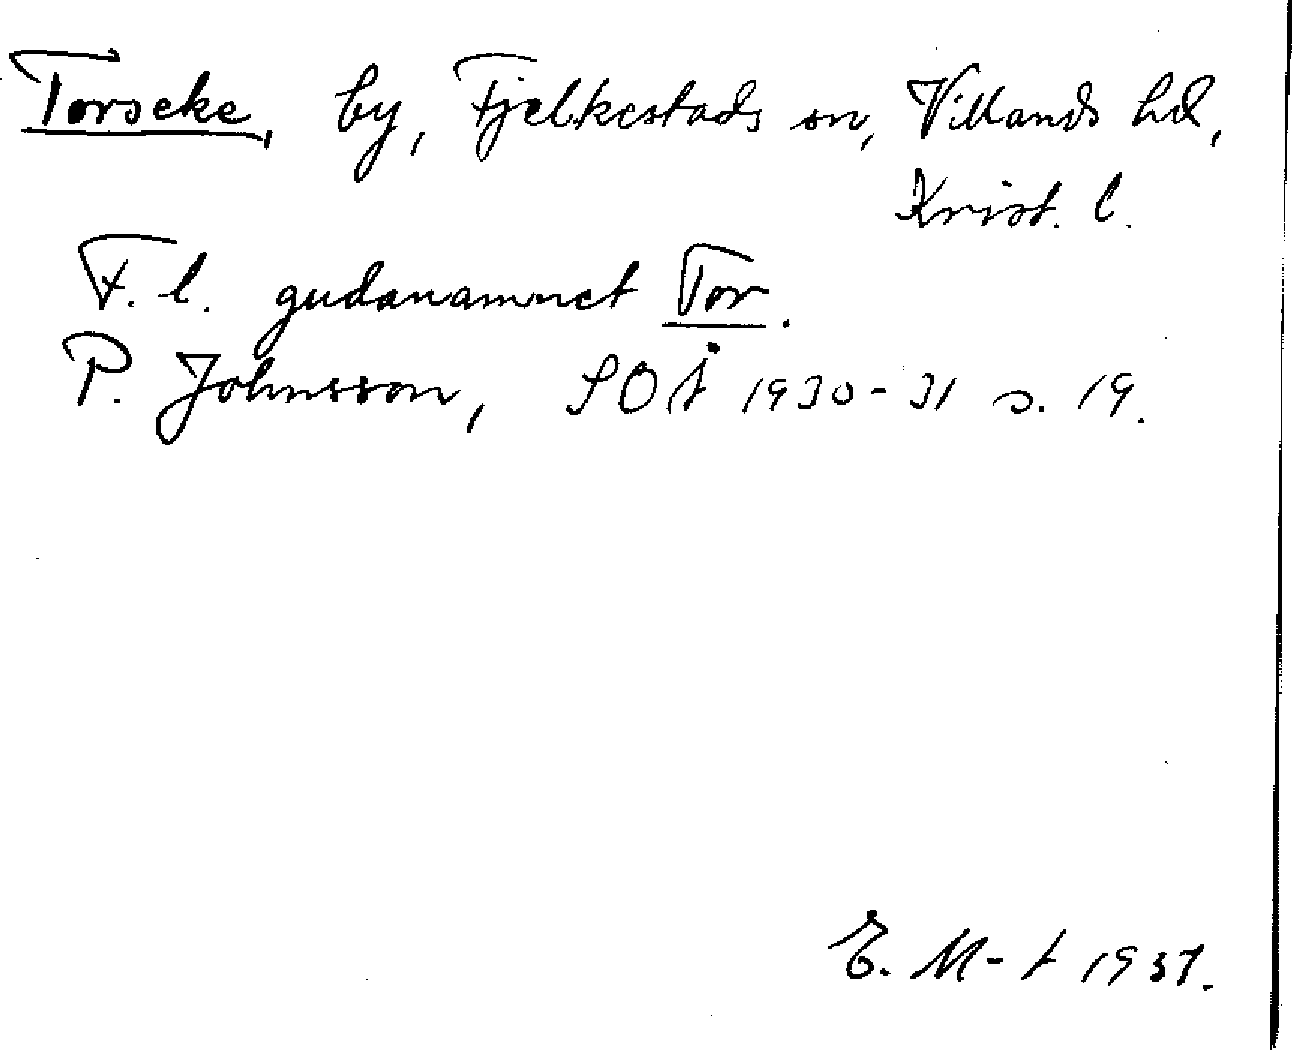 Torseke, by, Fjelkestads sn, Villands hd,
Krist. l.
F. l. gudanamnet Tor.
P. Johnsson, SOÅ 1930-31 s. 19.
E. M-t 1937.